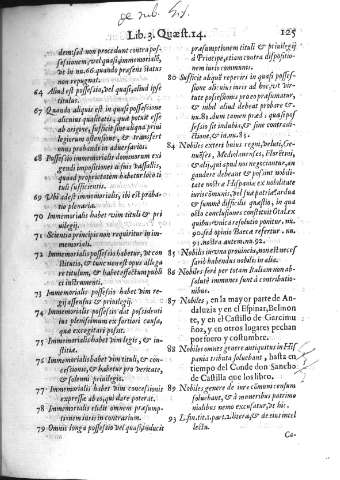 de nub. Six.
Lib. 3. Quæst. 14. 125
dem: sed non procedunt contra pos-
sessionem, vel quasi, immemorialē,
vt in nu. 66. quando præsens status
non repugnat.
64 Aliud est possessio, vel quasi, aliud ipse
titulus.
67 Quando aliquis est in quasi possessione
alicuius qualitatis, quæ potuit esse
ab origine, sufficit sine aliqua priui
legiorum ostensione, & transfert
onus probandi in aduersarios.
68 Possessio immemorialis communium exi
gendi impositiones à suis vasallis,
quoad proprietatem habetur loco ti
tuli sufficientis.
69 Vbi adest immemorialis, ibi est probatio
plenaria.
70 Immemorialis habet vim tituli & pri
uilegij.
71 Scientia principis non requiritur in im-
memoriali.
72 Immemorialis possessio habetur, de con
stituto, & tunc necesse opus allega
re titulum, & habet effectum publi
ci instrumenti.
73 Immemorialis possessio habet vim re-
gij assensus & priuilegij.
74 Immemorialis possessio dat possidenti
ius plenissimum ex fortiori causa,
quæ excogitari posset.
75 Immemorialis habet vim legis, & iu-
stitiæ.
76 Immemorialis habet vim tituli, & con-
cessionis, & habetur pro veritate,
& solemni priuilegio.
77 Immemorialis habet vim concessionis
expressæ ab eo, qui dare poterat.
78 Immemorialis elidit omnem præsump-
tionem iuris in contrarium.
79 Omnis longa possessio vel quasi, inducit
præsumptionem tituli & priuilegij
à Principe, etiam contra dispositio-
nem iuris communis.
80 Sufficit aliquē reperiri in quasi posses-
sione alicuius iuris ad hoc, vt vir-
tute possessionis pro eo præsumatur,
& nihil aliud debeat probare &
nu. 82. dum tamen præd. quasi pos
sessio sit indubia, & sine contradi-
ctione, & in nu. 83.
84 Nobiles exteri huius regni, veluti, Ge-
nuēses, Mediolanenses, Florētini,
& alij, qui apud nos negociantur, an
gaudere debeant & possint nobili-
tate nostra Hispania ex nobilitate
iuris cōmunis, vel suæ patriæ: ardua
& summè difficilis quæstio, in qua
octo conclusiones constituit Otalex
quibus: vnica resolutio ponitur, nu.
90. sed opinio Baeçæ refertur. nu.
91. nostra autem. nu. 92.
85 Nobilis in vna prouincia, non est neces
sariò habendus nobilis in alia.
86 Nobiles ferè per totam Italiam non ab-
soluunt immunes sunt à contributio-
nibus.
87 Nobiles, en la mayor parte de An-
daluzia y en el Espinar, Belmon
te, y en el Castillo de Garcimu
ñoz, y en otros lugares pechan
por fuero y costumbre.
88 Nobiles omnes genere antiquitus in His
pania tributa soluebant, hasta en
tiempo del Conde don Sancho
de Castilla que los libro.
89 Nobiles genere de iure cōmuni censum
soluebant, & à muneribus patrimo
nialibus nemo excusatur, de hic.
93 L. fin. tit. 2. part. 2. litera, & de eius intel
lectu.
Ca-